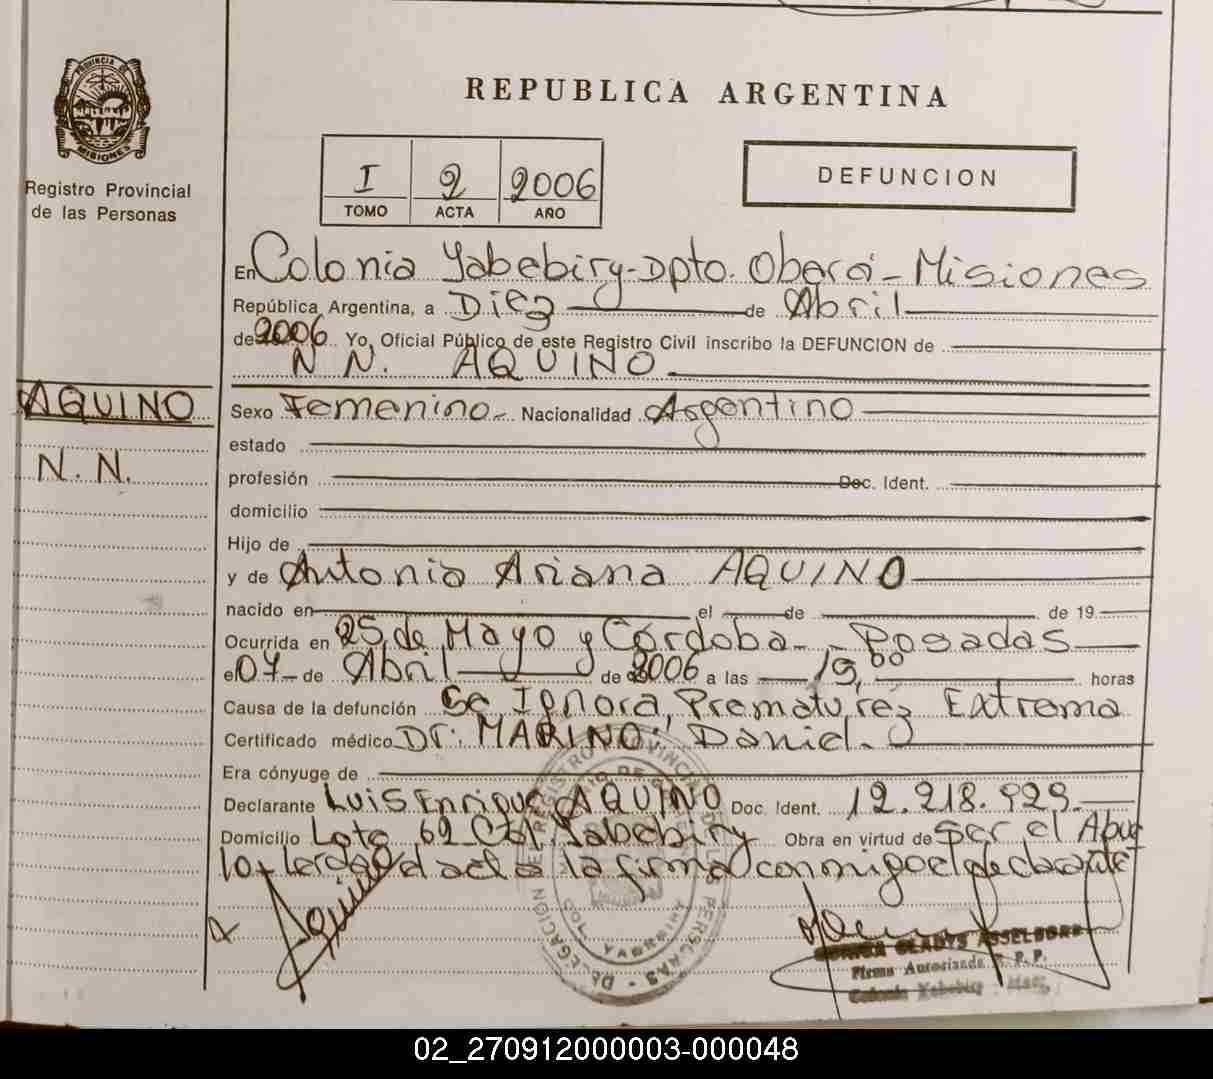 PROVINCIA DE
MISIONES
Registro Provincial
de las Personas
REPUBLICA ARGENTINA
I 2 2006
TOMO ACTA AÑO
DEFUNCION
En Colonia Yabebiry-Dpto. Oberá-Misiones
República Argentina, a Diez de Abril
de 2006 Yo, Oficial Público de este Registro Civil inscribo la DEFUNCION de
N N. AQUINO
AQUINO
N. N.
Sexo Femenino Nacionalidad Argentino
estado
profesión Doc. Ident.
domicilio
Hijo de
y de Antonia Ariana AQUINO
nacido en el de de 19
Ocurrida en 25 de Mayo y Córdoba - Posadas
el 07 de Abril de 2006 a las 19,00 horas
Causa de la defunción Se Ignora, Prematurez Extrema
Certificado médico Dr. MARINO: Daniel.
Era cónyuge de
Declarante Luis Enrique AQUINO Doc. Ident. 12.218.929.
Domicilio Lote 62 Col. Yabebiry Obra en virtud de Ser el Abue
lo, Leída el acta la firma conmigo el declarante
Aquino
DELEGACION DEL REGISTRO PROVINCIAL DE LAS PERSONAS
COL. YABEBIRY
GLADYS
Firma Autorizada R. P. P.
Colonia Yabebiry - Mnes.
02_270912000003-000048